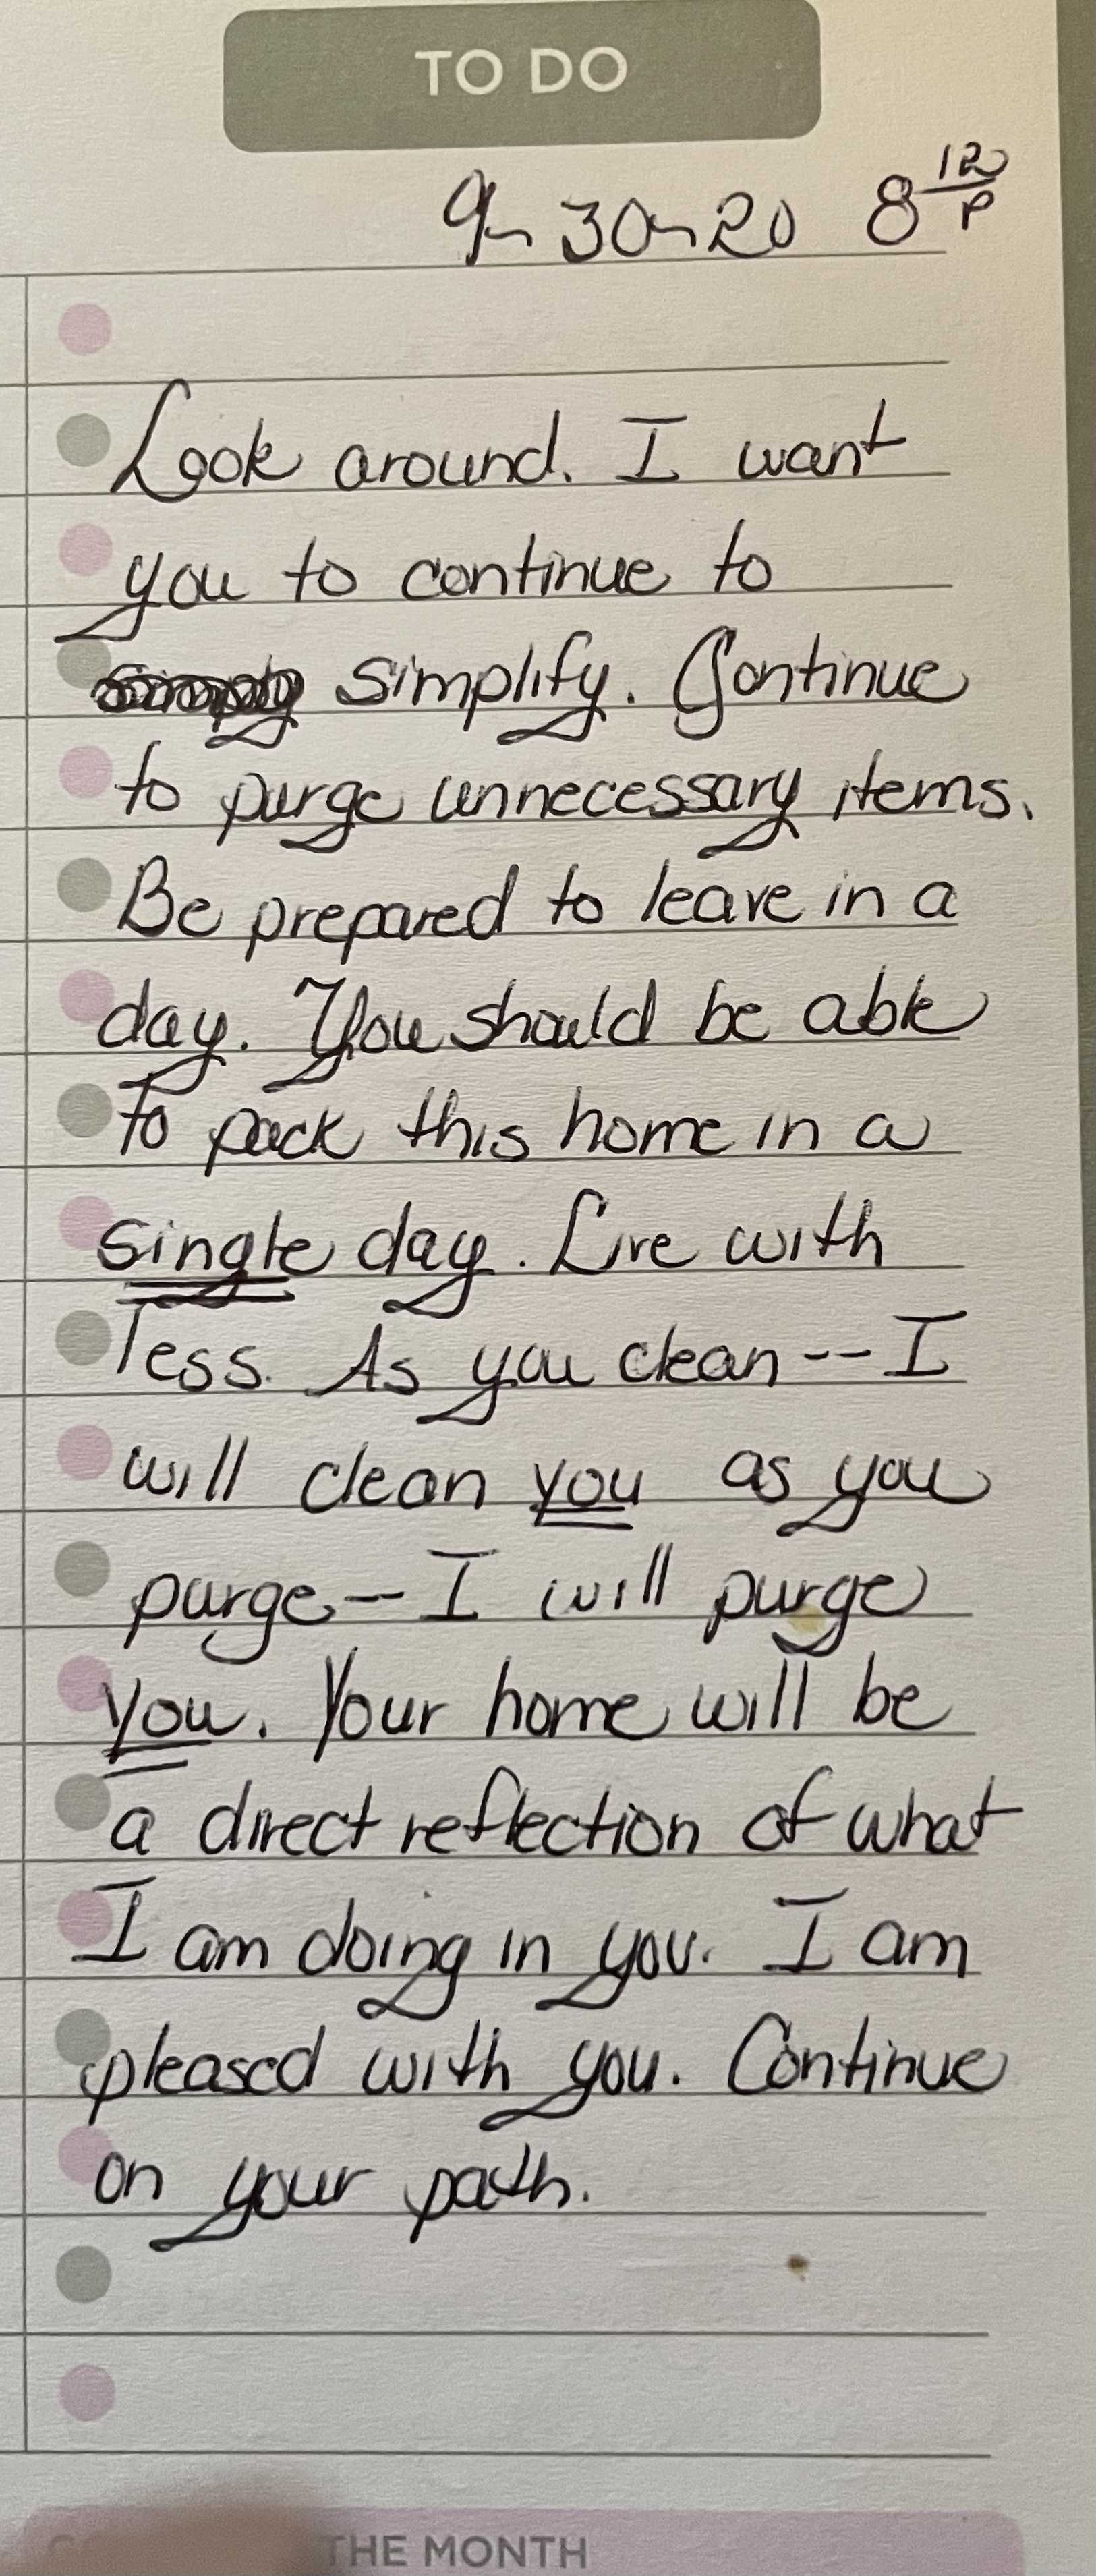 TO DO
9-30-20 8 12/P
Look around. I want
you to continue to
simplify. Continue
to purge unnecessary items.
Be prepared to leave in a
day. You should be able
to pack this home in a
single day. Live with
less. As you clean -- I
will clean you as you
purge -- I will purge
you. Your home will be
a direct reflection of what
I am doing in you. I am
pleased with you. Continue
on your path.
THE MONTH